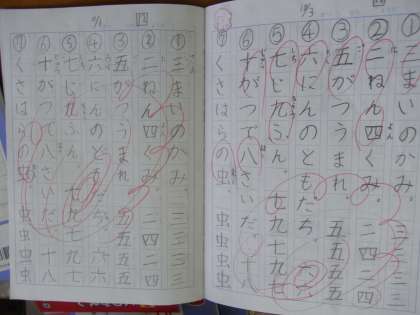 10/3
①三まいのかみ。三三三三
②二ねん四くみ。二四二四
③五がつうまれ。五五五五
④六にんのともだち。六六
⑤七じ九ふん。七九七九七
⑥十がつで八さいだ。十八
⑦くさはらの虫。虫虫虫虫
①三まいのかみ。三三三三
②二ねん四くみ。二四二四
③五がつうまれ。五五五五
④六にんのともだち。六六
⑤七じ九ふん。七九七九七
⑥十がつで八さいだ。十八
⑦くさはらの虫。虫虫虫虫